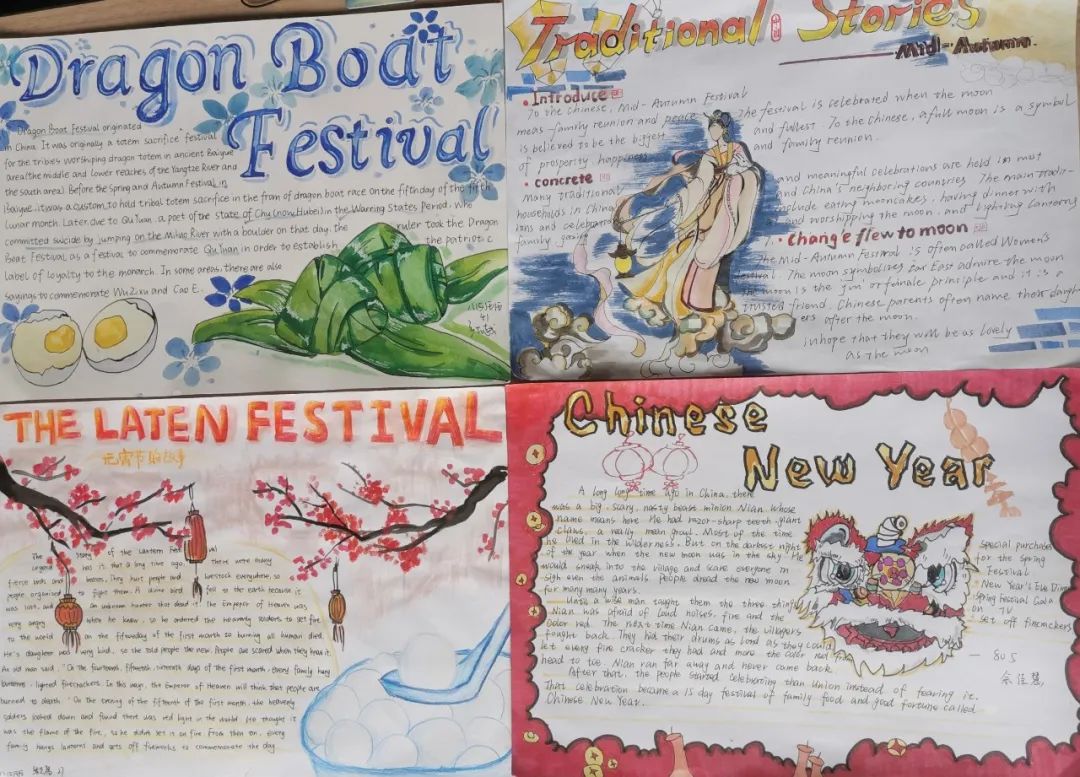 Dragon Boat
Festival
Dragon Boat Festival originated
in China. It was originally a totem sacrifice festival
for the tribes worshiping dragon totem in ancient Baiyue
area (the middle and lower reaches of the Yangtze River and
the south area). Before the Spring and Autumn Festival, in
Baiyue, it was a custom to hold tribal totem sacrifice in the fram of dragon boat race on the fifth day of the fifth
lunar month. Later, due to Qu Yuan, a poet of the state of Chu (now Hubei) in the Warring States Period, who
committed suicide by jumping on the Miluo River with a boulder on that day, the ruler took the Dragon
Boat Festival as a festival to commemorate Qu Yuan in order to establish the patriotic
label of loyalty to the monarch. In some areas, there are also
sayings to commemorate Wu Zixu and Cao E.
Traditional Stories
Mid-Autumn.
• Introduce
To the Chinese, Mid-Autumn Festival
meas family reunion and peace.
is believed to be the biggest
of prosperity, happiness
The festival is celebrated when the moon
and fullest. To the Chinese, a full moon is a symbol
and family reunion.
• concrete
Many traditional
households in China
ions and celebrat
family
and meaningful celebrations are held in most
and China's neighboring countries. The main tradit-
include eating mooncakes, having dinner with
and worshipping the moon, and lighting lanterns
• Chang'e flew to moon
The Mid-Autumn Festival is often called Women's
festival. The moon symbolizes Far East admire the moon
The moon is the 'yin' or female principle and it is a
trusted friend. Chinese parents often name their daugh
ers after the moon.
in hope that they will be as lovely
as the moon
THE LATEN FESTIVAL
元宵节的故事
The story of the Lantern Festival
legend has it that a long time ago, There were many
fierce birds and beasts. They hurt people and livestock everywhere, so
people organized to fight them. A divine bird fell to the earth because it
was lost, and an unknown hunter shot dead it. The Emperor of Heaven was
very angry when he knew, so he ordered the heavenly soldiers to set fire
to the world on the fifteenday of the first month to burning all human died.
He's daughter was very kind, so she told people the new. People are scared when they hear it.
An old man said, "On the fourteenth, fifteenth, sixteenth days of the first month, every family hang
lanterns, lighted firecrackers. In this way, the Emperor of Heaven will think that people are
burned to death." On the evening of the fifteenth of the first month, the heavenly
soldiers looked down and found there was red light in the world. He thought it
was the flame of the fire, so he didn't set it on fire. From then on, every
family hangs lanterns and sets off fireworks to commemorate the day.
Chinese
New Year
A long long time ago in China, there
was a big, scary, nasty beast minion Nian whose
name means here. He had razor-sharp teeth, giant
claws, a really mean growl. Most of the time
he lived in the wilderness. But on the darkest night
of the year when the new moon was in the sky. He
would sneak into the village and scare everyone in
sigh even the animals. People dread the new moon
for many many years.
Until a wise man taught them the three things
Nian was afraid of loud noises, fire and the
color red. The next time Nian came, the villagers
fought back. They hit their drums as loud as they could
let every fire cracker they had and more the color red from
head to toe. Nian ran far away and never came back.
After that, the people started celebrating than union instead of fearing it.
That celebration became a 15 day festival of family food and good fortune called
Chinese New Year.
special purchases
for the Spring
Festival
New Year's Eve Din
Spring Festival Gala
on TV
set off firemckers
— 805